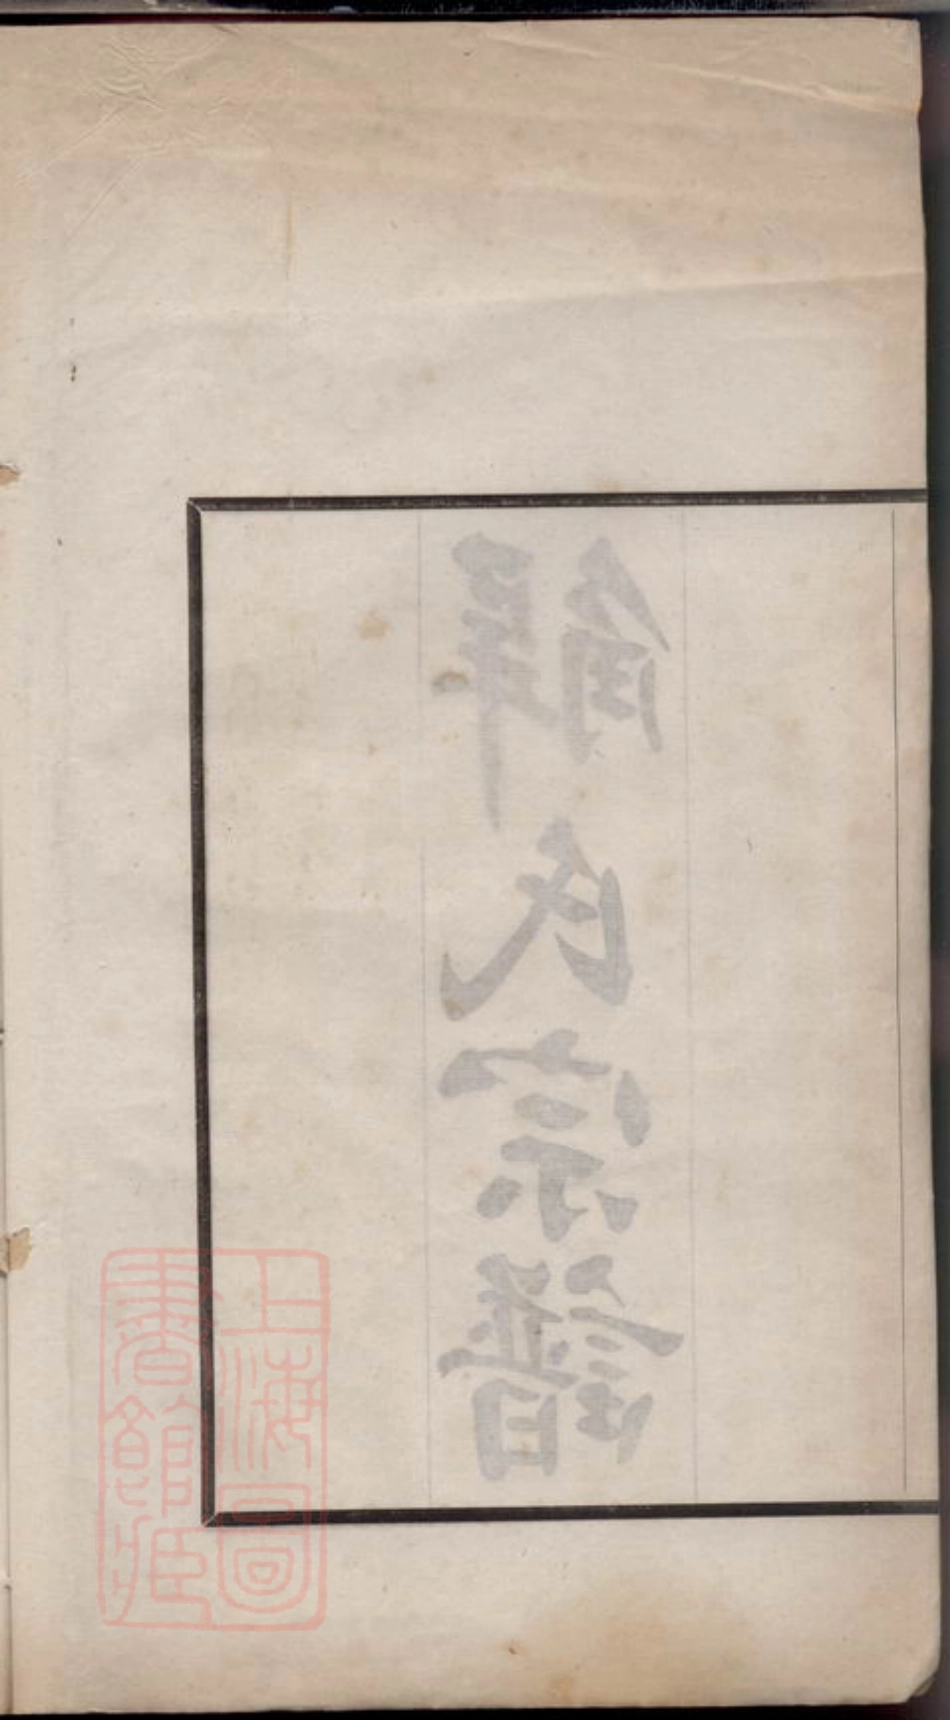 解氏宗譜
上海圖
書館藏